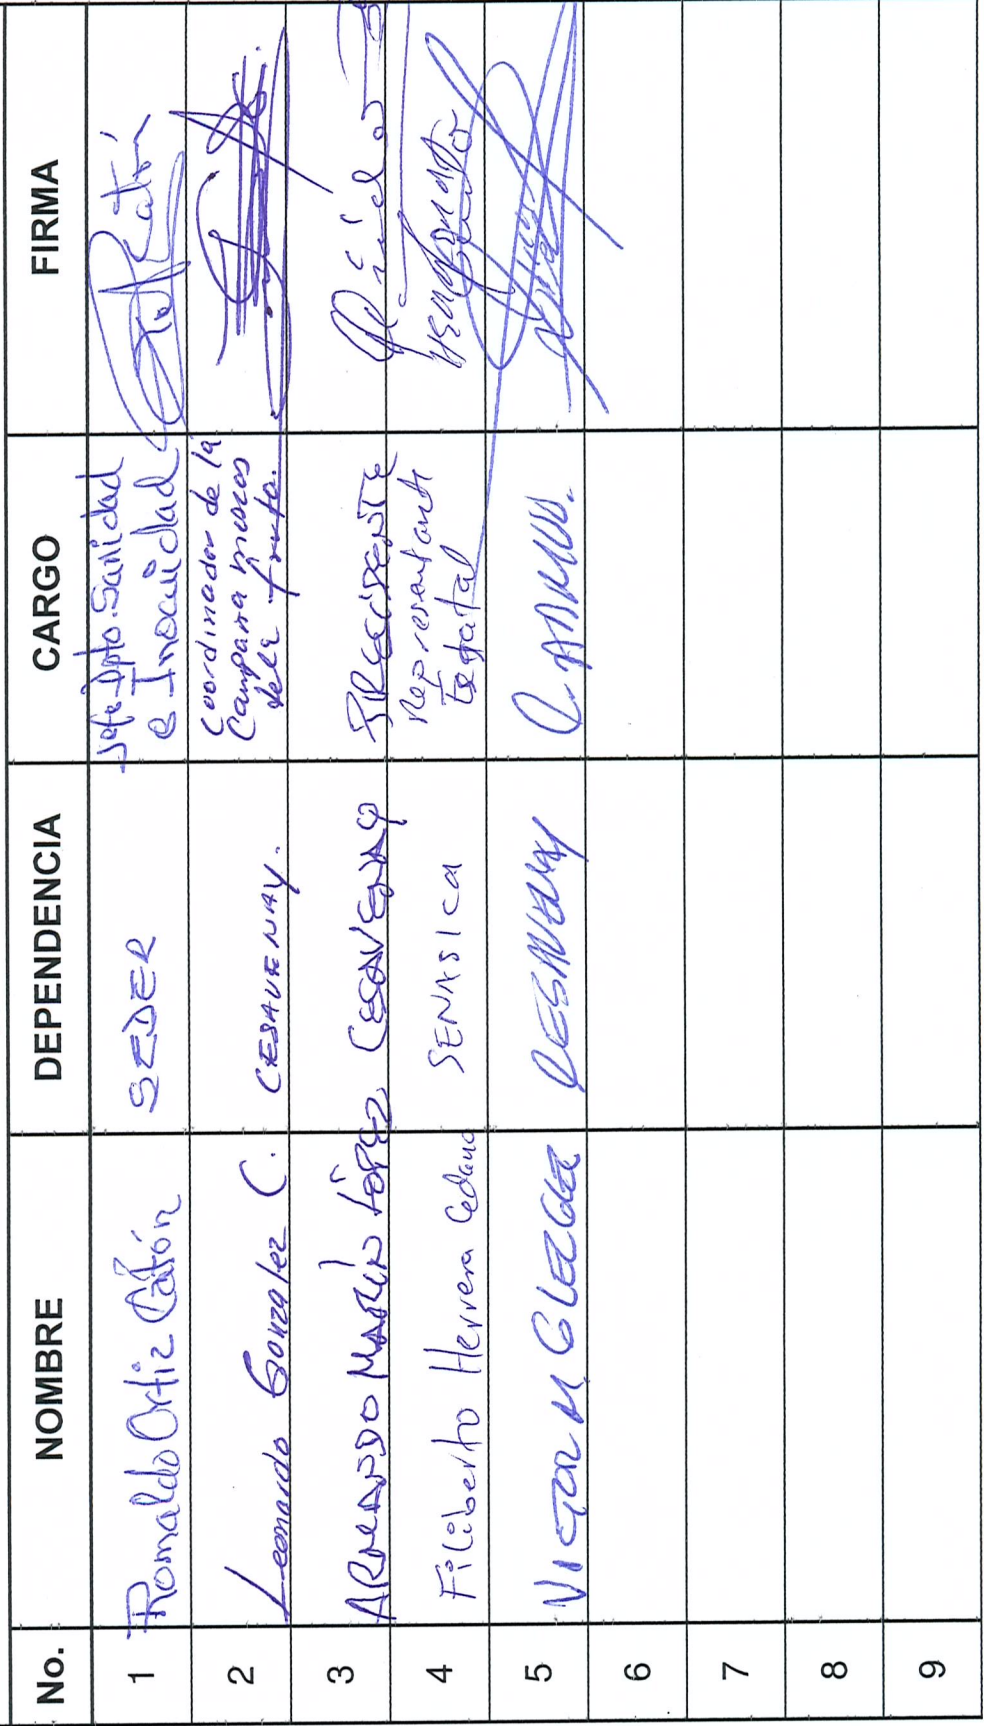 No. NOMBRE DEPENDENCIA CARGO FIRMA
1 Romaldo Ortiz Catón SEDER Jefe Dpto. Sanidad
e Inocuidad
2 Leonardo Gonzalez C. CESAVENAY. Coordinador de la
Campaña moscas
de la fruta.
3 ARMANDO MARÍN LÓPEZ CESAVENAY PRESIDENTE
4 Filiberto Herrera Cedano SENASICA Representante
Estatal
5 VICTOR M CESAVENAY C. ADMVO.
6
7
8
9